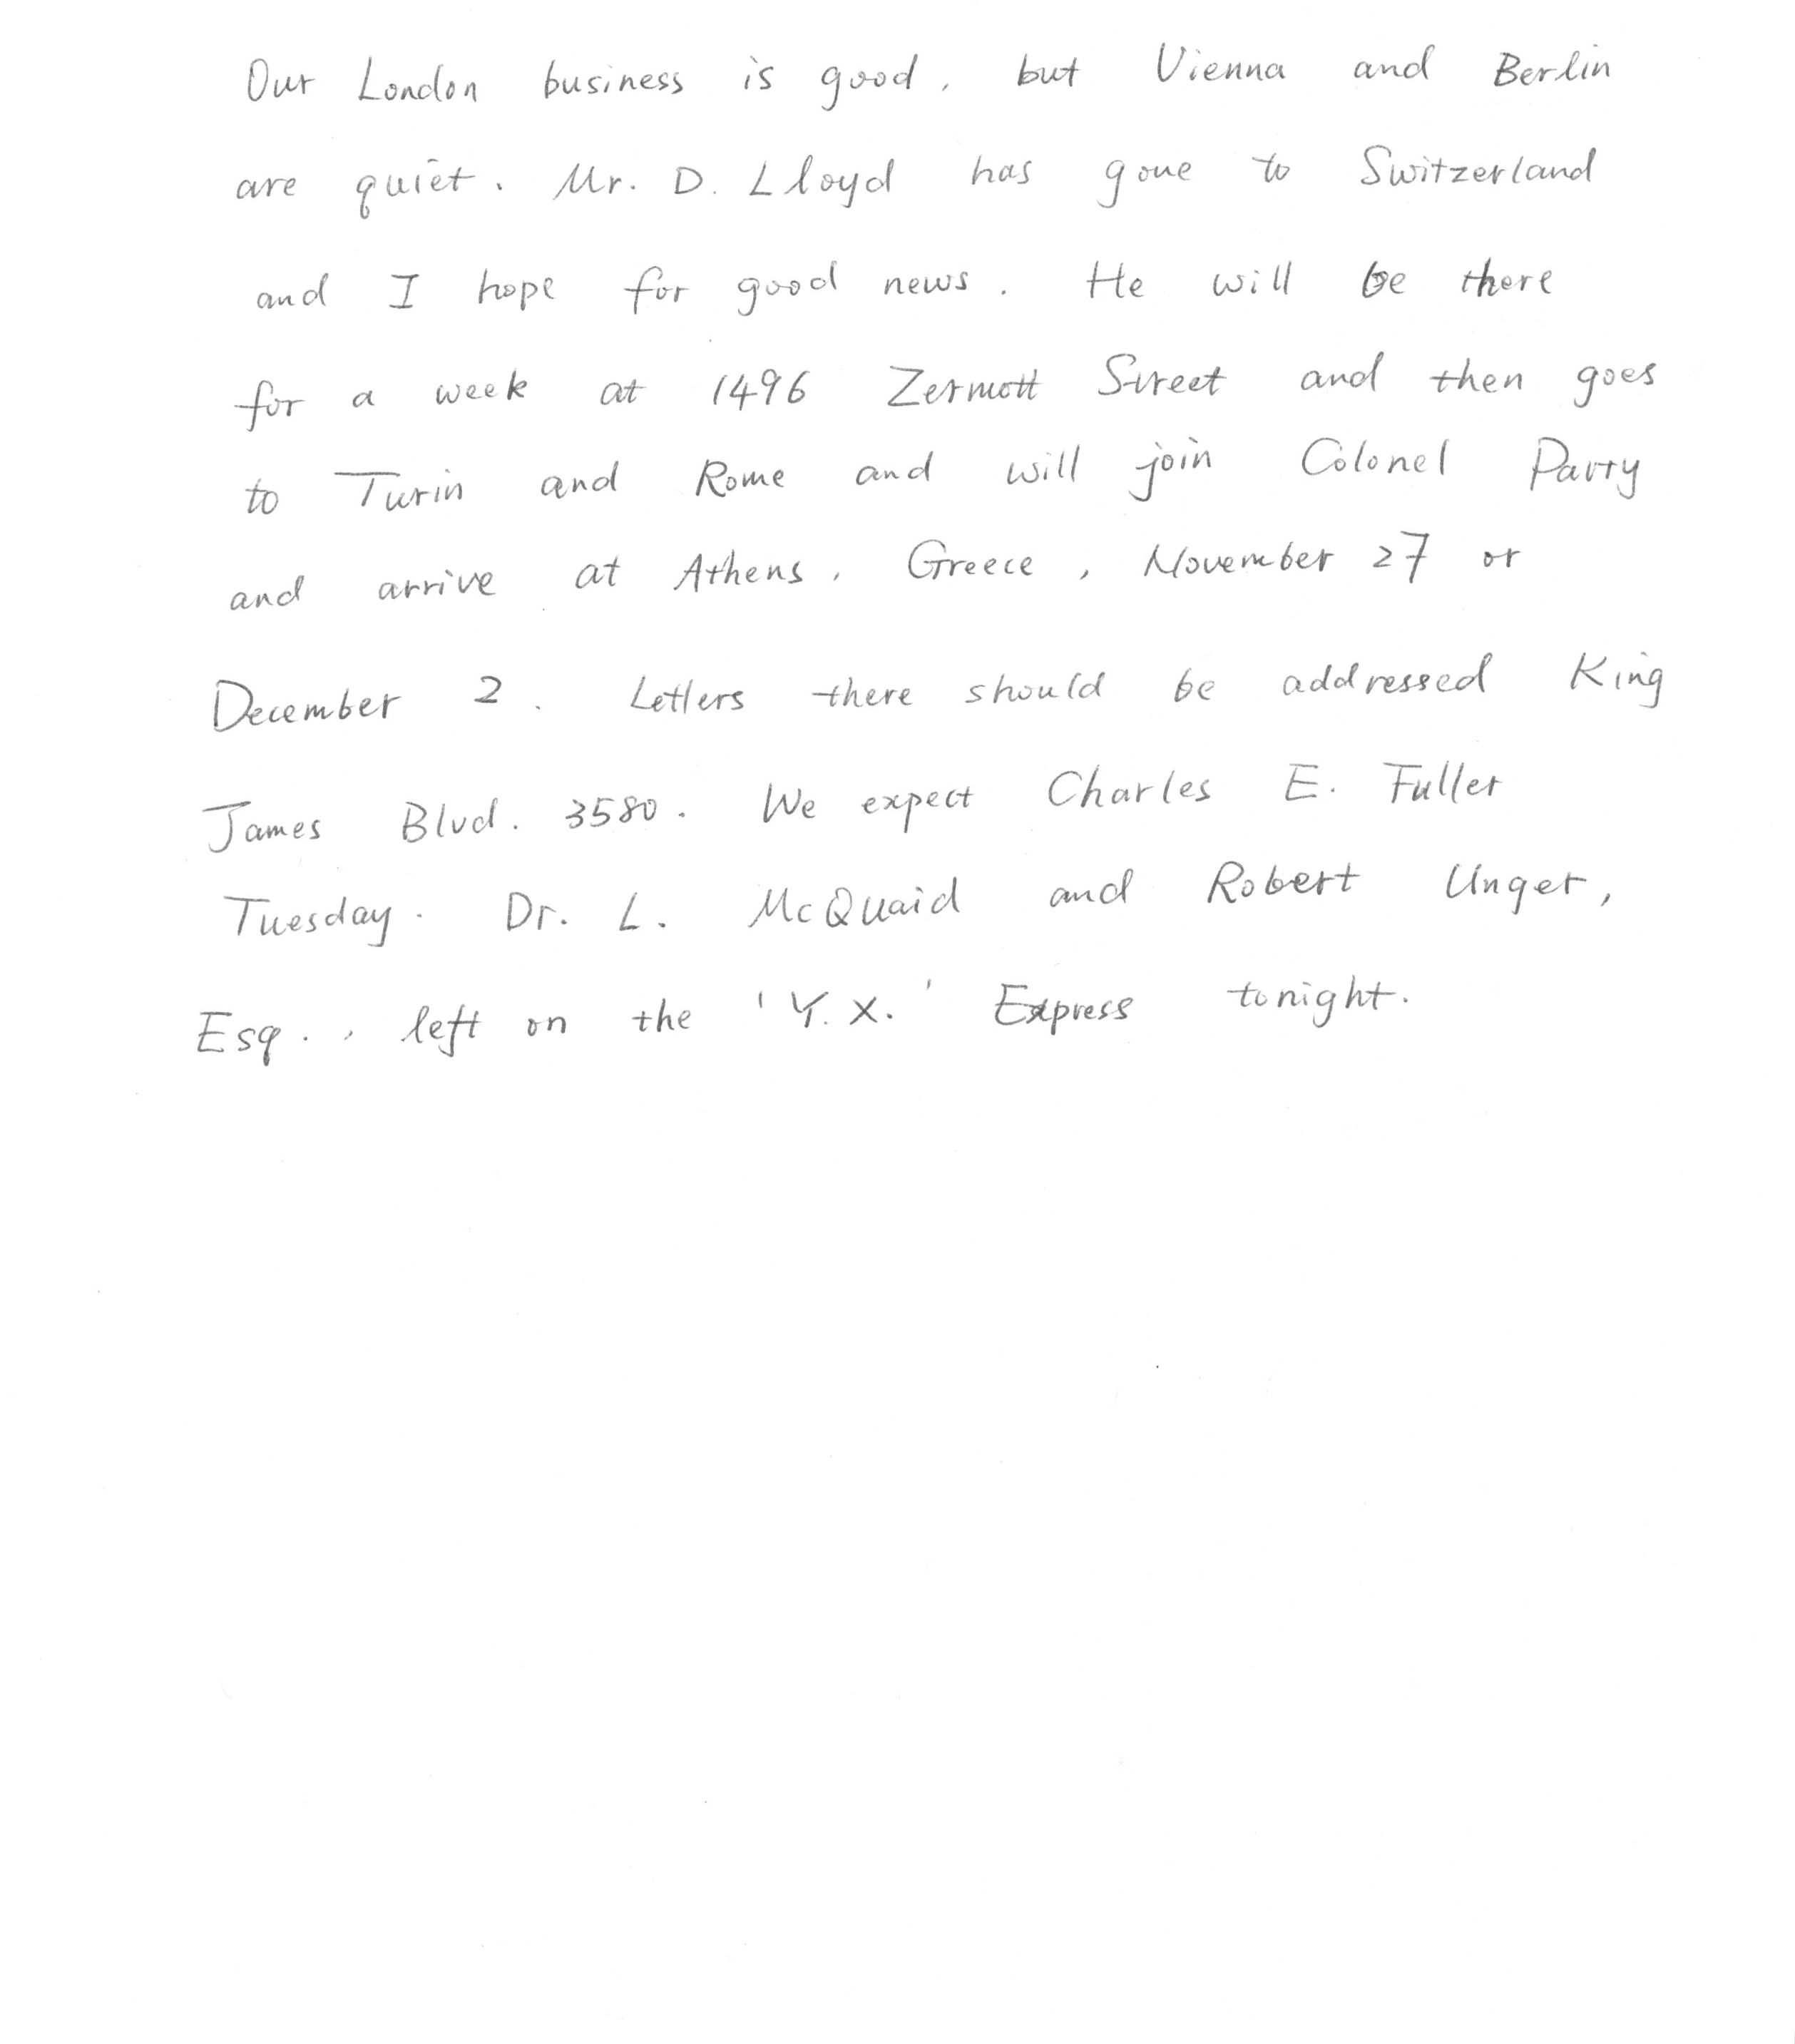 Our London business is good, but Vienna and Berlin
are quiet. Mr. D. Lloyd has gone to Switzerland
and I hope for good news. He will be there
for a week at 1496 Zermott Street and then goes
to Turin and Rome and will join Colonel Parry
and arrive at Athens, Greece, November 27 or
December 2. Letters there should be addressed King
James Blvd. 3580. We expect Charles E. Fuller
Tuesday. Dr. L. McQuaid and Robert Unger,
Esq., left on the 'Y.X.' Express tonight.